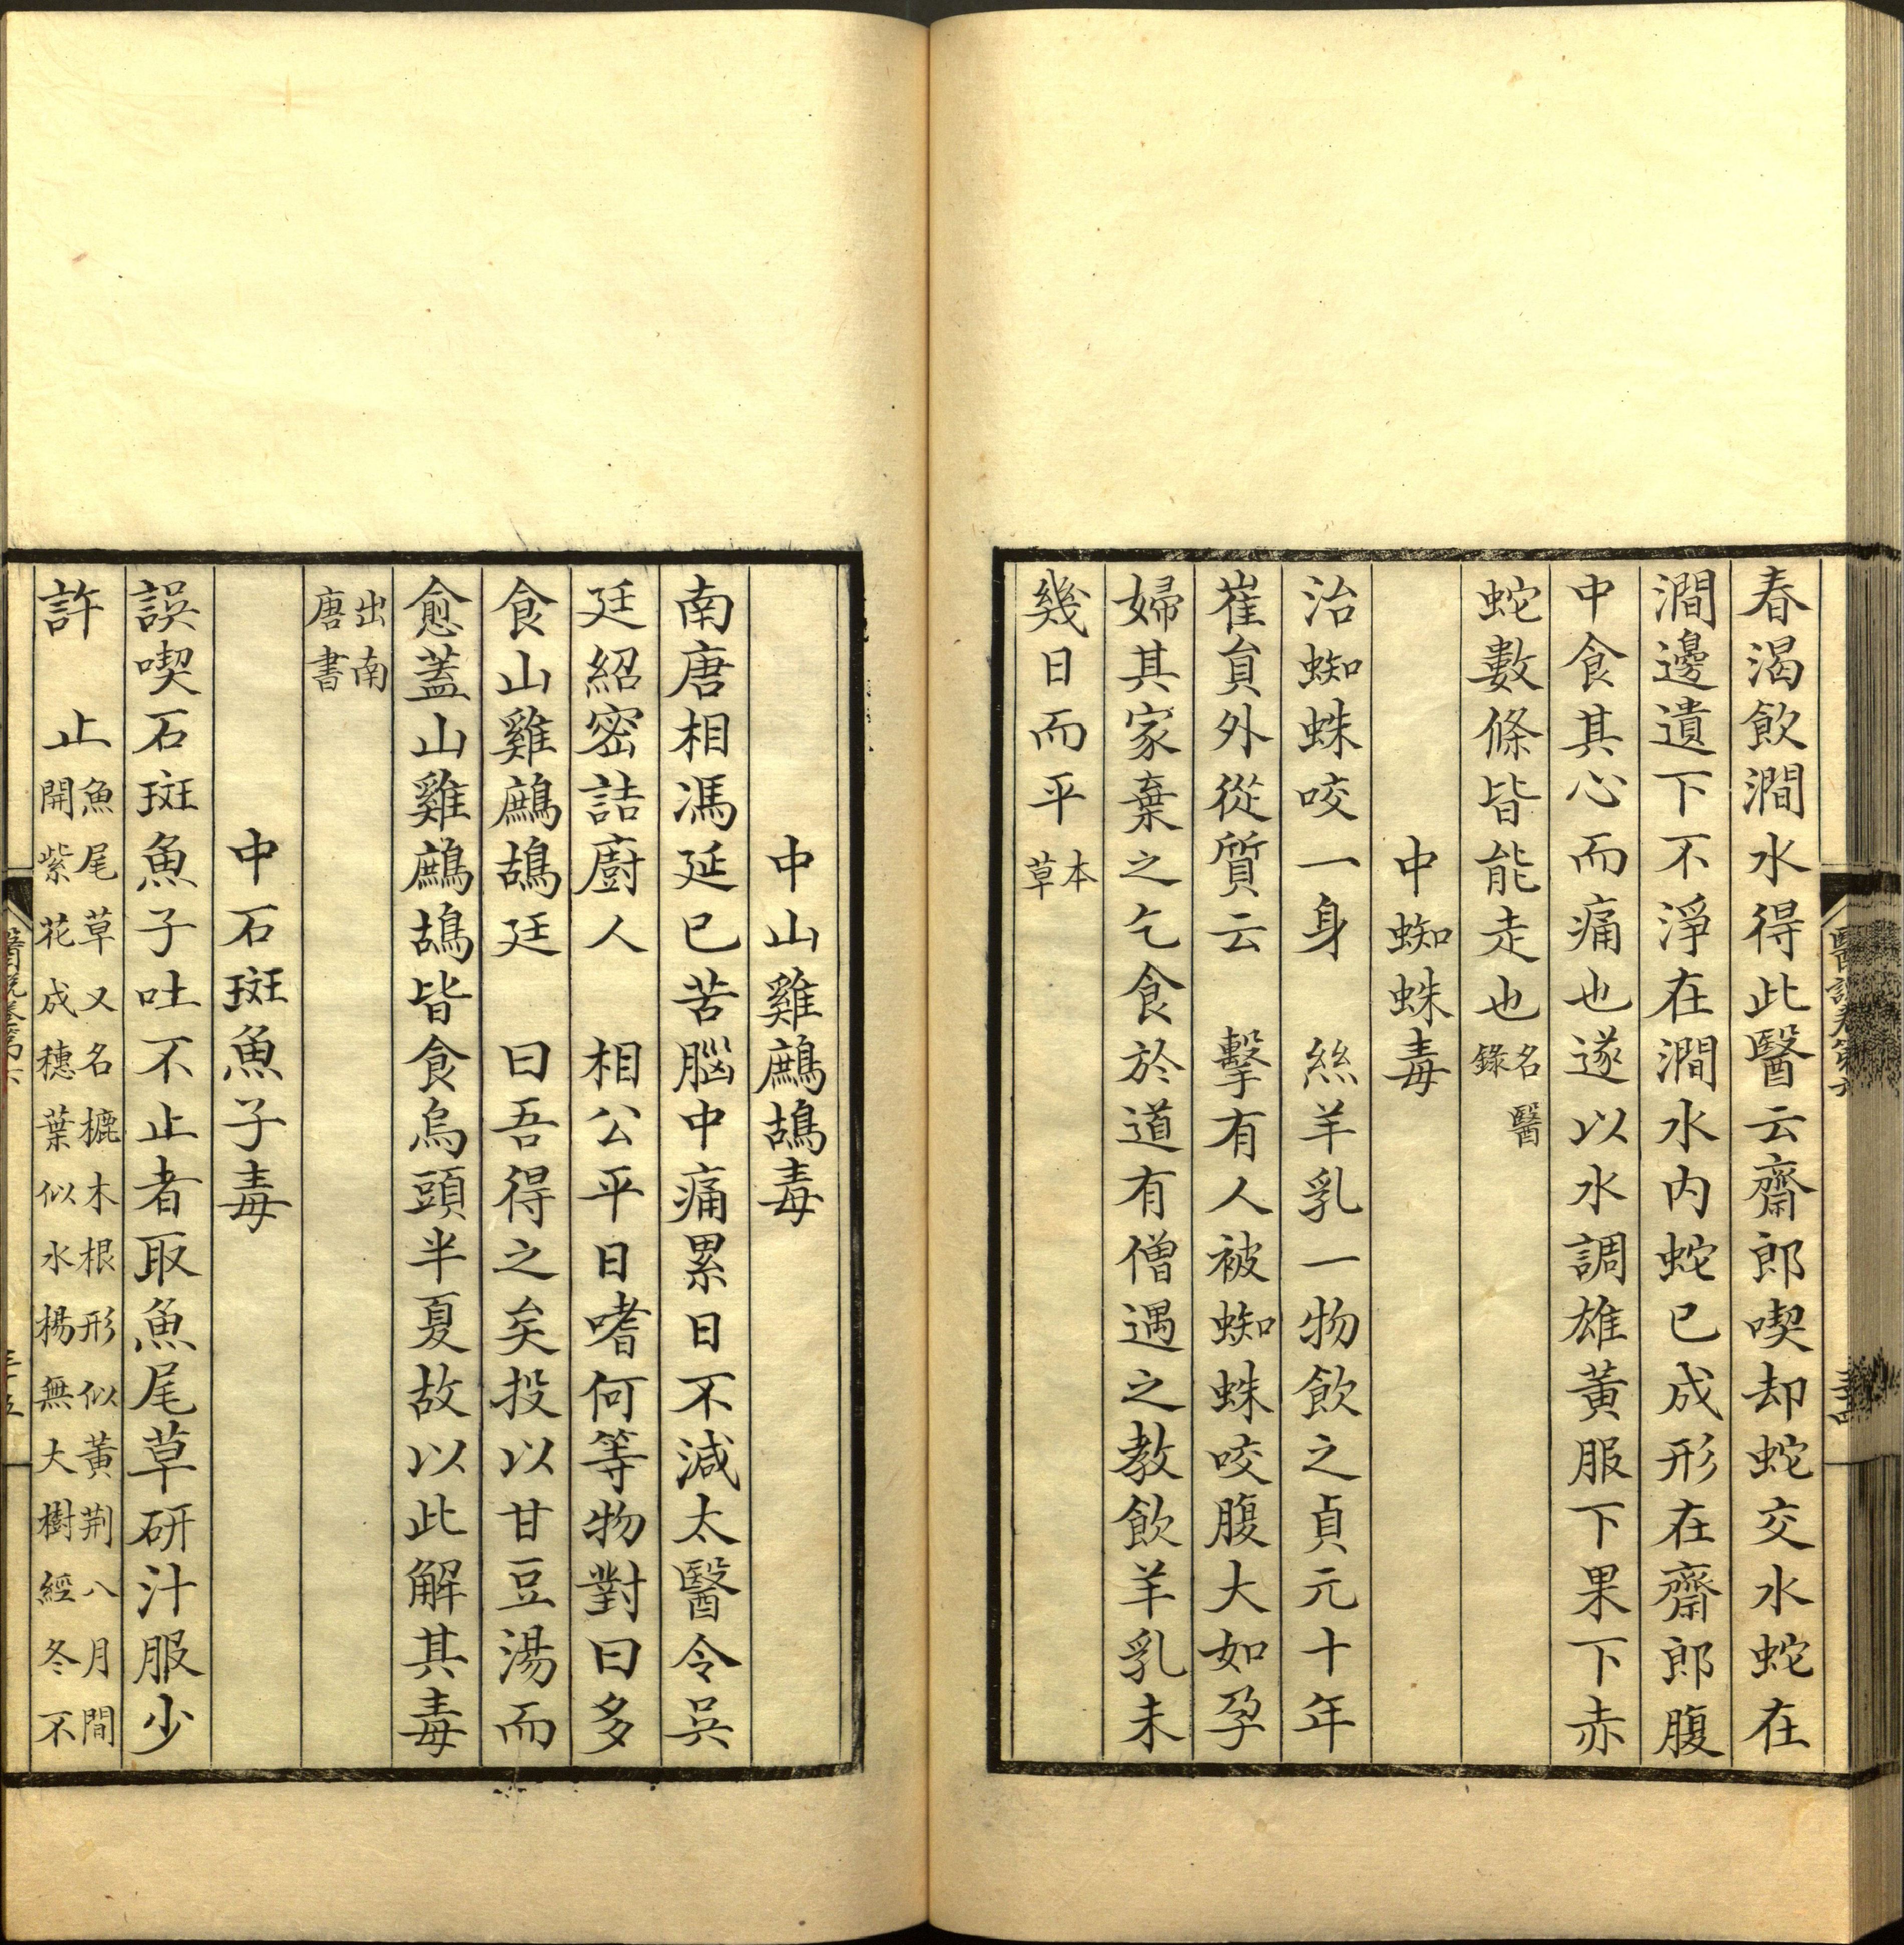 春渴飲澗水得此醫云齋郎喫却蛇交水蛇在
澗邊遺下不淨在澗水內蛇已成形在齋郎腹
中食其心而痛也遂以水調雄黃服下果下赤
蛇數條皆能走也名醫錄
中蜘蛛毒
治蜘蛛咬一身　絲羊乳一物飲之貞元十年
崔貟外從質云　擊有人被蜘蛛咬腹大如孕
婦其家棄之乞食於道有僧遇之教飲羊乳未
幾日而平本草
中山雞鷓鴣毒
南唐相馮延巳苦腦中痛累日不減太醫令吳
廷紹密詰廚人　相公平日嗜何等物對曰多
食山雞鷓鴣廷　曰吾得之矣投以甘豆湯而
愈蓋山雞鷓鴣皆食烏頭半夏故以此解其毒
出南唐書
中石斑魚子毒
誤喫石斑魚子吐不止者取魚尾草研汁服少
許　止魚尾草又名樚木根形似黃荆八月間
開紫花成穗葉似水楊無大樹經冬不